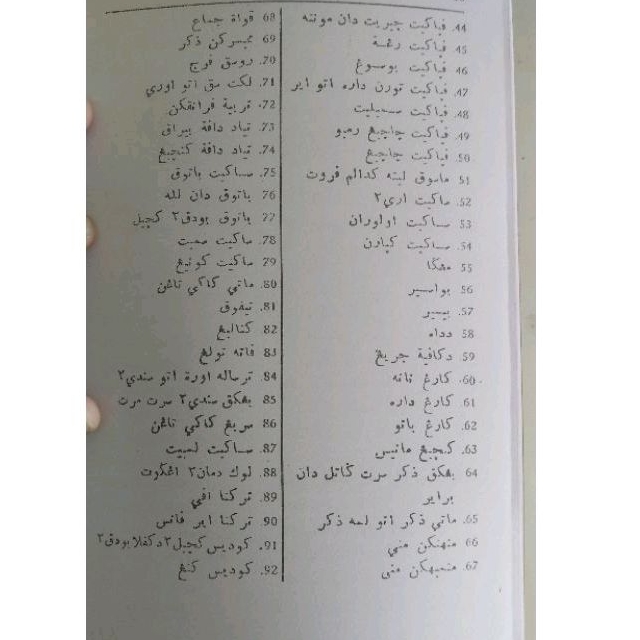 44. ڤاكيت چيريت دان مونته
45. ڤاكيت رغسة
46. ڤاكيت بوسوغ
47. ڤاكيت تورن داره اتو اير
48. ڤاكيت سمبيليت
49. ڤاكيت چاچيغ رمبو
50. ڤاكيت چاچيغ
51. ماسوق لينه كدالم ڤروت
52. ماكيت اري٢
53. ساكيت اولوران
54. ساكيت كيارن
55. مڠݢا
56. بواسير
57. بيسير
58. دداه
59. دكافية جريغ
60. كارغ نانه
61. كارغ داره
62. كارغ باتو
63. كنچيغ مانيس
64. بڠكق ذكر سرت ݢاتل دان
براير
65. ماتي ذكر اتو لمه ذكر
66. منهنكن مني
67. منمبهكن منى
68. قواة جماع
69. ممبسركن ذكر
70. روسق فرج
71. لكت سق اتو اوري
72. تربية فرانقكن
73. تياد داڤة بيراق
74. تياد داڤة كنچيغ
75. ساكيت باتوق
76. باتوق دان لله
77. باتوق بودق٢ كچيل
78. ماكيت سمبت
79. ماكيت كونيغ
80. ماتي كاكي تاڠن
81. تيفوق
82. كناليغ
83. ڤاته تولغ
84. ترساله اورة اتو سندي٢
85. بڠكق سندي٢ سرت مرت
86. سربغ كاكي تاڠن
87. ساكيت لمبيت
88. لوك دمان٢ اڠݢوت
89. تركنا افي
90. تركنا اير ڤانس
91. كوديس كچيل٢ دكڤلا بودق٢
92. كوديس كنغ